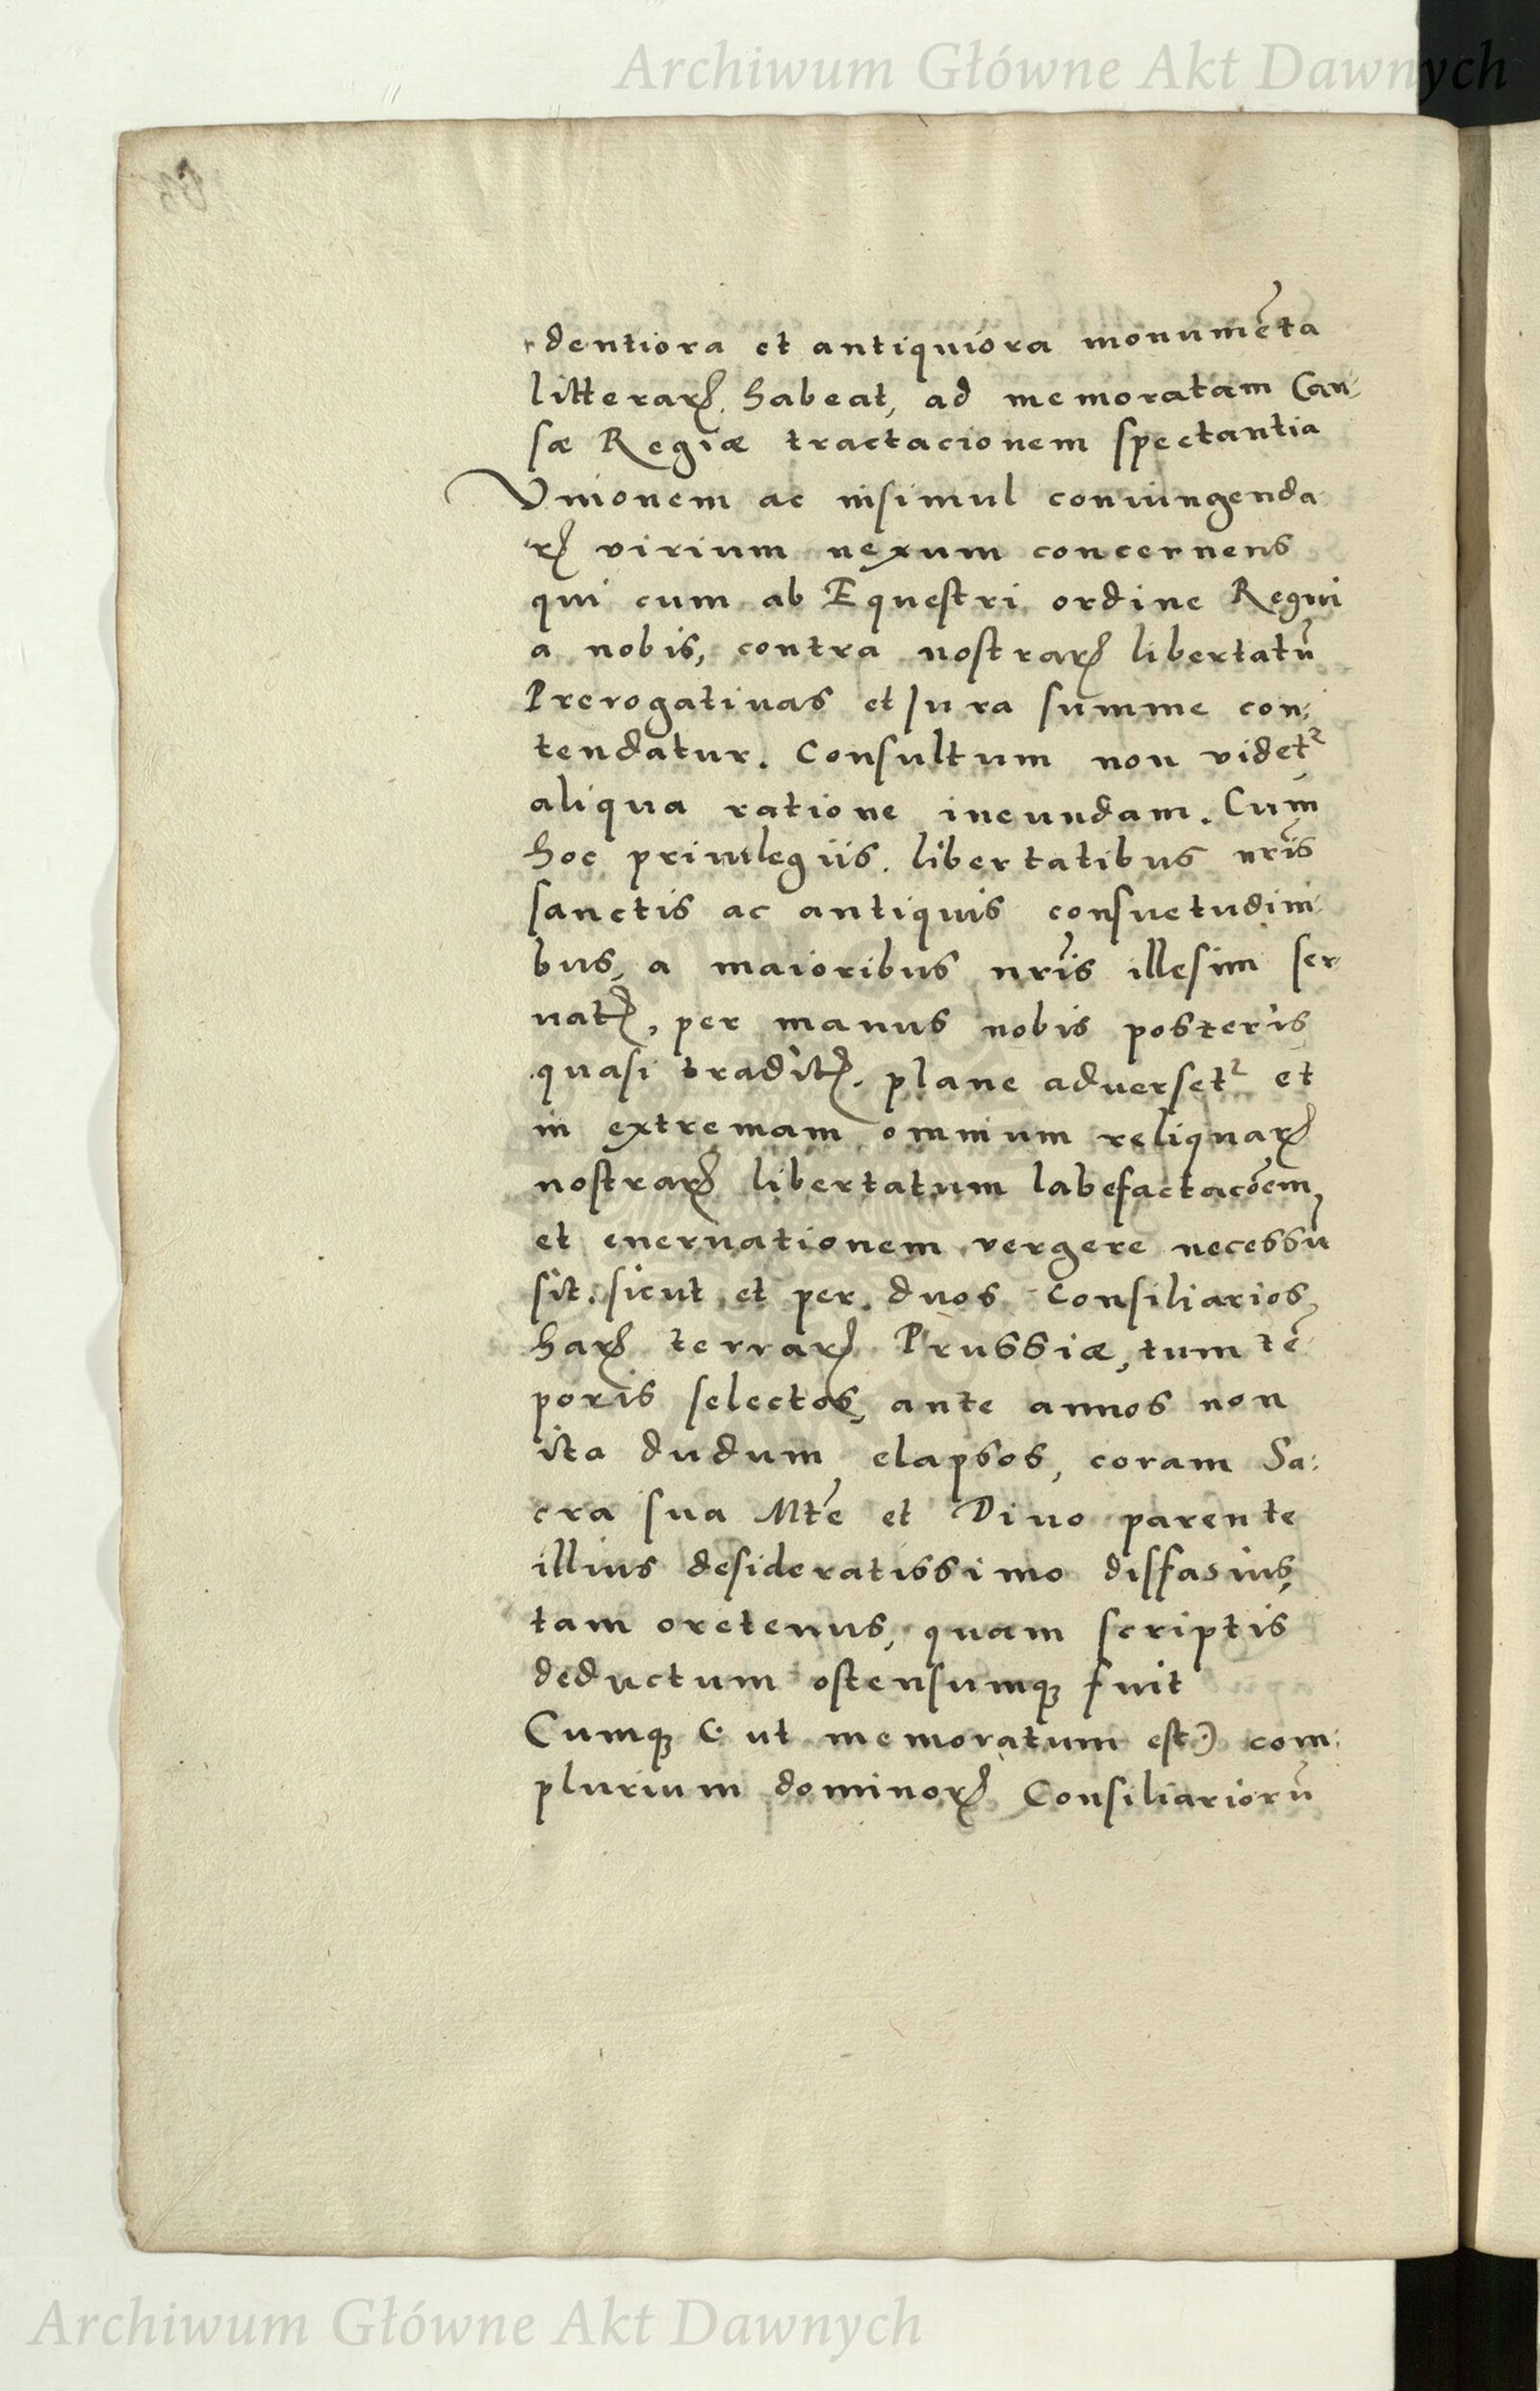 Archiwum Główne Akt Dawnych
dentiora et antiquiora monumēta
litterarꝝ habeat, ad memoratam Cau-
sæ Regiæ tractacionem spectantia
Vnionem ac insimul coniungenda
rꝝ virium nexum concernens
qui cum ab Equestri ordine Regni
a nobis, contra nostrarꝝ libertatū
Prerogatiuas et Jura summe con:
tendatur. Consultum non videtᷣ
aliqua ratione ineundam. Cum
hoc priuilegiis. libertatibus nr̃is
sanctis ac antiquis consuetudini
bus, a maioribus nr̃is illesim ser-
uatꝭ, per manus nobis posteris
quasi traditꝭ. plane aduersetᷣ et
in extremam omnium reliquarꝝ
nostrarꝝ libertatum labefactacõem,
et eneruationem vergere necessū
sit. sicut et per duos Consiliarios,
harꝝ terrarꝝ Prussiæ, tum tē
poris selectos, ante annos non
ita dudum elapsos, coram Sa:
cra sua Mte et Diuo parente
illius desideratissimo diffasius,
tam oretenus, quam scriptis
deductum ostensumqꝫ fuit
Cumqꝫ (: ut memoratum est:) com:
plurium dominorꝝ Consiliariorū
Archiwum Główne Akt Dawnych